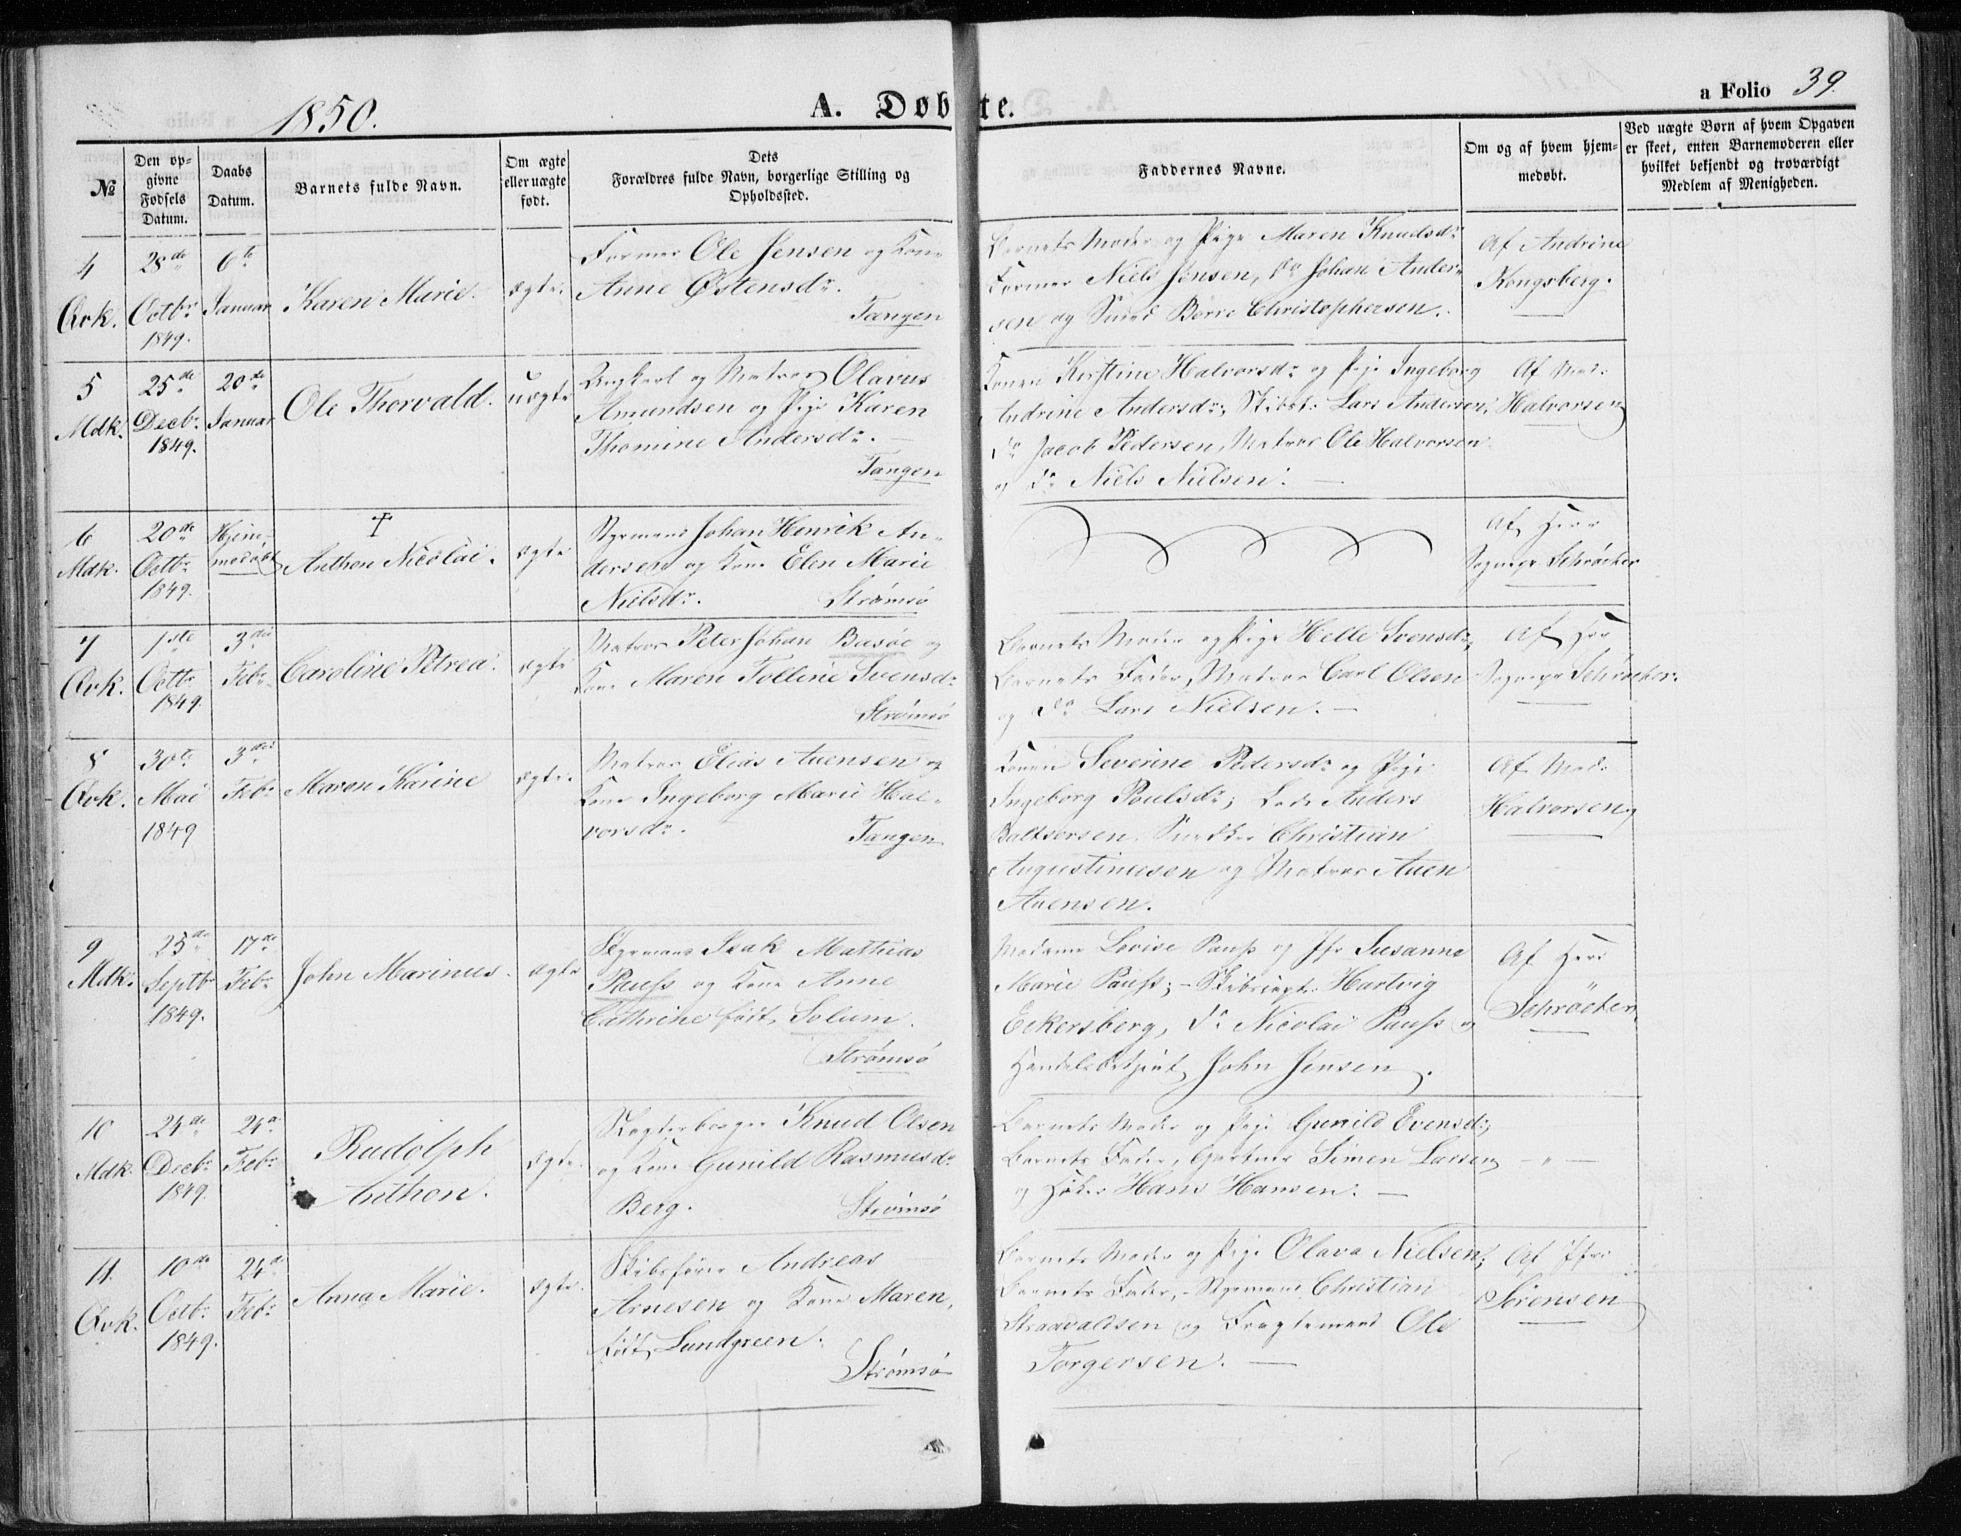 1850.
A. Døbte.
a Folio 39.
№
Den opgivne Fødsels Datum.
Daabs Datum.
Barnets fulde Navn.
Om ægte eller uægte født.
Dets Forældres fulde Navn, borgerlige Stilling og Opholdssted.
Faddernes Navne.
Om og af hvem hjemmedøbt.
Ved uægte Børn af hvem Opgaven er skeet, enten Barnemoderen eller hvilket bekjendt og troværdigt Medlem af Menigheden.
4
Qvk.
28de
Octbr
1849.
6te
Januar
Karen Marie.
ægte.
Former Ole Jensen og Kone
Anne Østensdr.
Tangen
Barnets Moder og Pige Maren Knudsdr
Former Niels Jensen, Do Johan Ander-
sen og Smed Børre Christophersen.
Af Andrine
Kongsberg.
5
Mdk.
25de
Decbr
1849.
20de
Januar
Ole Thorvald.
uægte
Ungkarl og Matros Olavus
Amundsen og Pige Karen
Thomine Andersdr.
Tangen
Konen Kirstine Halvorsdr og Pige Ingeborg
Andrine Andersdr, Lars Andersen,
Do Jacob Pedersen, Matros Ole Halvorsen
og Do Niels Nielsen.
Af Mad.
Halvorsen
6
Mdk.
20de
Octbr
1849.
Hjem-
medøbt
†
Anthon Nicolai.
ægte
Styrmand Johan Henrik An-
dersen og Kone Elen Marie
Nielsdr.
Strømsø
Af Herr
Sognepr Schrøeter
7
Qvk.
1ste
Octbr
1849
3die
Febr
Caroline Petrea.
ægte
Matros Peter Johan Basøe og
Kone Maren Volline Svensdr
Strømsø
Barnets Moder og Pige Helle Svensdr,
Barnets Fader, Matros Carl Olsen
og Do Lars Nielsen.
Af Hr
Sognepr Schrøeter.
8
Qvk.
30te
Mai
1849
3die
Febr
Maren Karine
ægte.
Matros Elias Auensen og
Kone Ingeborg Marie Hal-
vorsdr.
Tangen
Konen Severine Pedersdr og Pige
Ingeborg Poulsdr; Lods Anders
Baltsersen, Snedker Christian
Augustinusen og Matros Auen
Auensen.
Af Mad.
Halvorsen
9
Mdk.
25de
Septbr
1849.
17de
Febr
John Marinus.
ægte
Styrmand Isak Mathias
Pauss og Kone Anne
Cathrine født Solum.
Strømsø
Madame Lovise Pauss og Jfr Susanne
Marie Pauss; Hartvig
Eckersberg, Do Nicolai Pauss og
Handelsbetjent John Jensen.
Af Herr
Schrøeter.
10
Mdk.
24de
Decbr
1849.
24de
Febr
Rudolph
Anthon.
ægte.
Knud Olsen
og Kone Gunild Rasmusdr
Berg.
Strømsø
Barnets Moder og Pige Gunild Evensdr,
Barnets Fader, Gartner Simen Larsen
og Hans Hansen.
— „ —
11.
Qvk.
10de
Octbr
1849.
24de
Febr
Anna Marie.
ægte.
Skibsfører Andreas
Arnesen og Kone Maren,
født Lundgreen.
Strømsø
Barnets Moder og Pige Olava Nielsen;
Barnets Fader, Styrmand Christian
Stradvaldsen og Fragtemand Ole
Torgersen.
Af Jfr
Sørensen